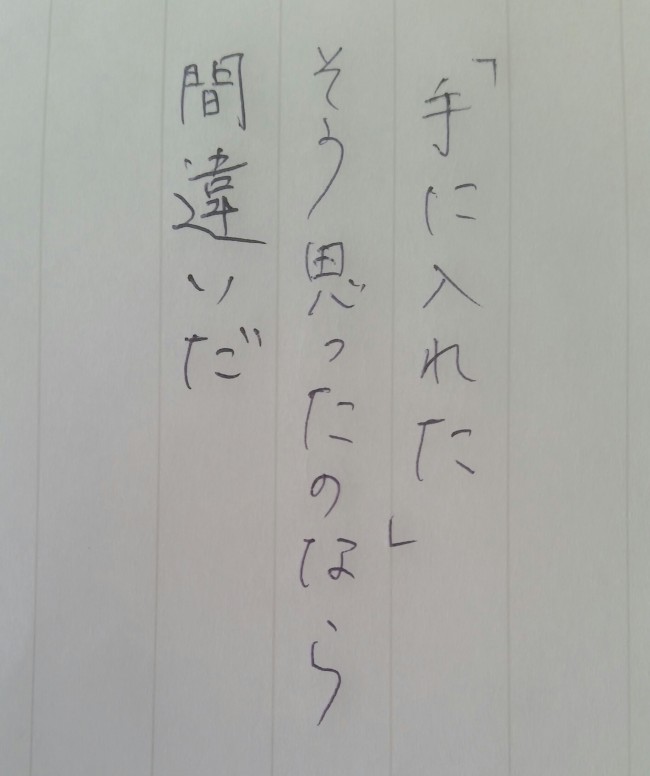 「手に入れた」
そう思ったのなら
間違いだ